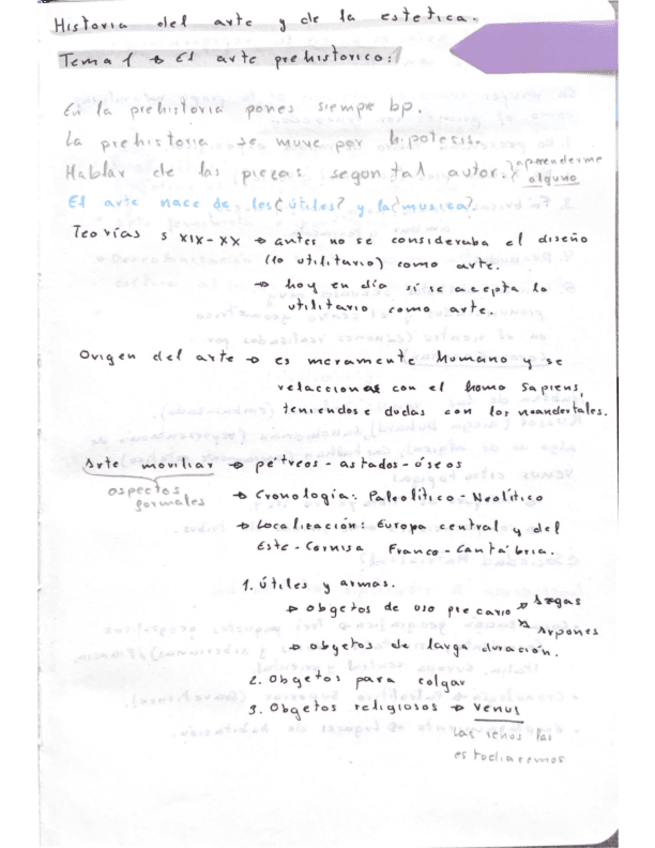 Historia del arte y de la estetica.
Tema 1 → El arte prehistorico:
En la prehistoria pones siempre bp.
La prehistoria se muve por hipotesis.
Hablar de las piezas segon tal autor. } aprenderme alguno
El arte nace de los ¿útiles? y la ¿musica?
Teorías s XIX-XX → antes no se consideraba el diseño
(lo utilitario) como arte.
→ hoy en día sí se acepta lo
utilitario como arte.
Origen del arte → es meramente humano y se
relacciona con el homo sapiens,
teniendose dudas con los neandertales.
Arte moviliar → pétreos - astados - óseos
aspectos formales
→ Cronología: Paleolítico - Neolítico
→ Localización: Europa central y del
Este - Cornisa Franco - Cantábria.
1. útiles y armas.
→ obgetos de uso precario → Azgas
→ Arpones
→ obgetos de larga duración.
2. Obgetos para colgar
3. Obgetos religiosos → Venus
las venus las
estodiaremos